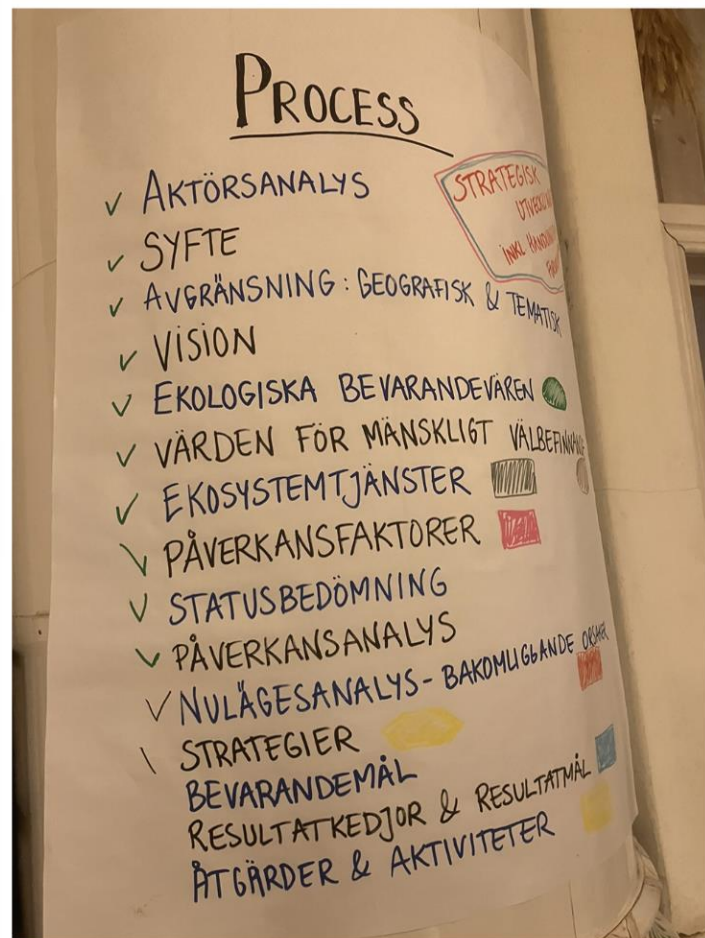 PROCESS
AKTÖRSANALYS
STRATEGISK
INKL
SYFTE
AVGRÄNSNING: GEOGRAFISK & TEMATISK
VISION
EKOLOGISKA BEVARANDEVÄREN
VÄRDEN FÖR MÄNSKLIGT
EKOSYSTEMTJÄNSTER
PÅVERKANSFAKTORER
STATUSBEDÖMNING
PÅVERKANSANALYS
NULÄGESANALYS - BAKOMLIGGANDE ORSAKER
STRATEGIER
BEVARANDEMÅL
RESULTATKEDJOR & RESULTATMÅL
ÅTGÄRDER & AKTIVITETER